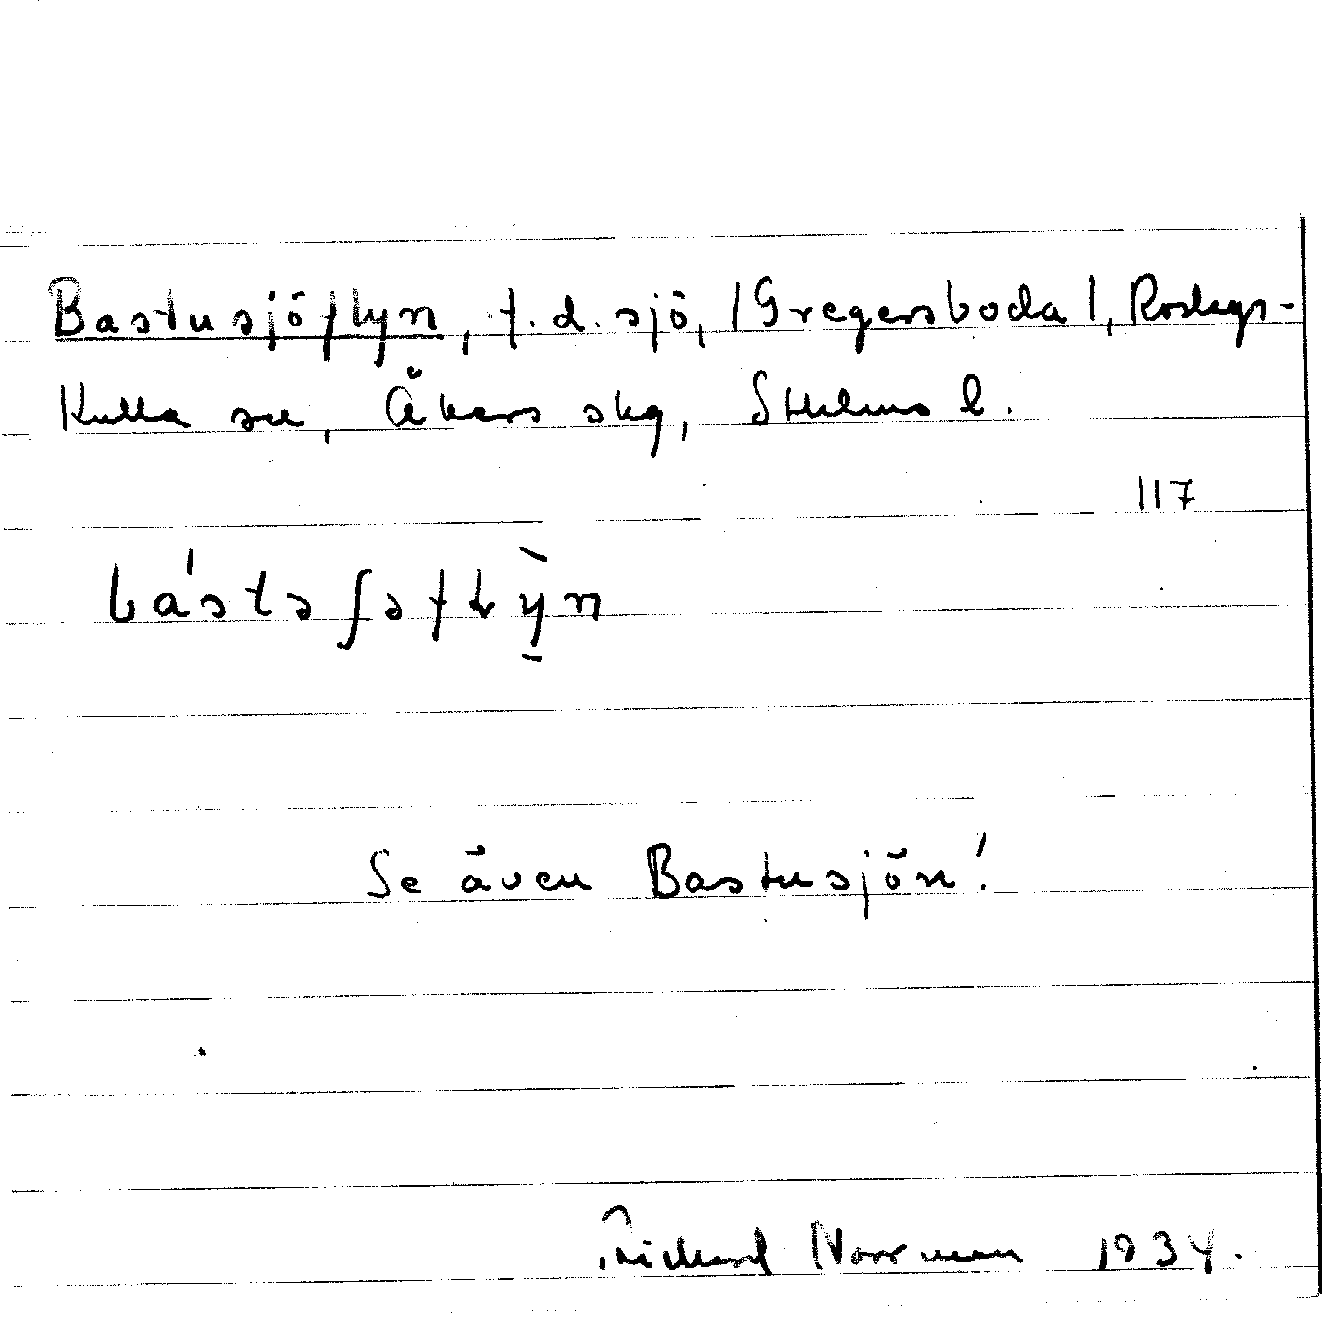 Bastusjöflyn, f.d. sjö, /Gregersboda/, Roslags-
Kulla sn, Åkers skg, Sthlms l.
117
Se även Bastusjön!
Rickard Norrman 1934.